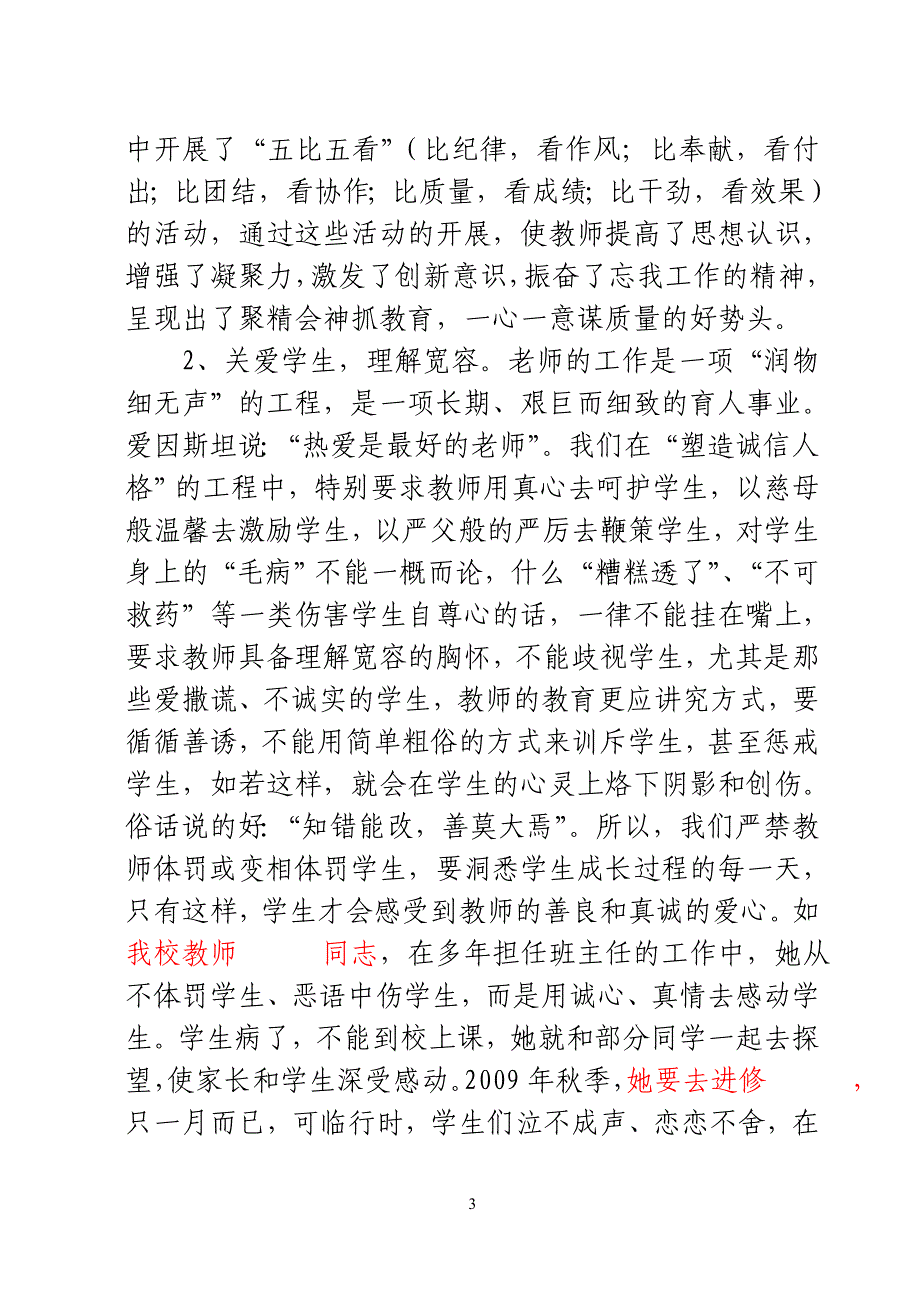 中开展了“五比五看”（比纪律，看作风；比奉献，看付
出；比团结，看协作；比质量，看成绩；比干劲，看效果）
的活动，通过这些活动的开展，使教师提高了思想认识，
增强了凝聚力，激发了创新意识，振奋了忘我工作的精神，
呈现出了聚精会神抓教育，一心一意谋质量的好势头。
2、关爱学生，理解宽容。老师的工作是一项“润物
细无声”的工程，是一项长期、艰巨而细致的育人事业。
爱因斯坦说：“热爱是最好的老师”。我们在“塑造诚信人
格”的工程中，特别要求教师用真心去呵护学生，以慈母
般温馨去激励学生，以严父般的严厉去鞭策学生，对学生
身上的“毛病”不能一概而论，什么“糟糕透了”、“不可
救药”等一类伤害学生自尊心的话，一律不能挂在嘴上，
要求教师具备理解宽容的胸怀，不能歧视学生，尤其是那
些爱撒谎、不诚实的学生，教师的教育更应讲究方式，要
循循善诱，不能用简单粗俗的方式来训斥学生，甚至惩戒
学生，如若这样，就会在学生的心灵上烙下阴影和创伤。
俗话说的好：“知错能改，善莫大焉”。所以，我们严禁教
师体罚或变相体罚学生，要洞悉学生成长过程的每一天，
只有这样，学生才会感受到教师的善良和真诚的爱心。如
我校教师　　　同志，在多年担任班主任的工作中，她从
不体罚学生、恶语中伤学生，而是用诚心、真情去感动学
生。学生病了，不能到校上课，她就和部分同学一起去探
望，使家长和学生深受感动。2009 年秋季，她要去进修　　　，
只一月而已，可临行时，学生们泣不成声、恋恋不舍，在
3